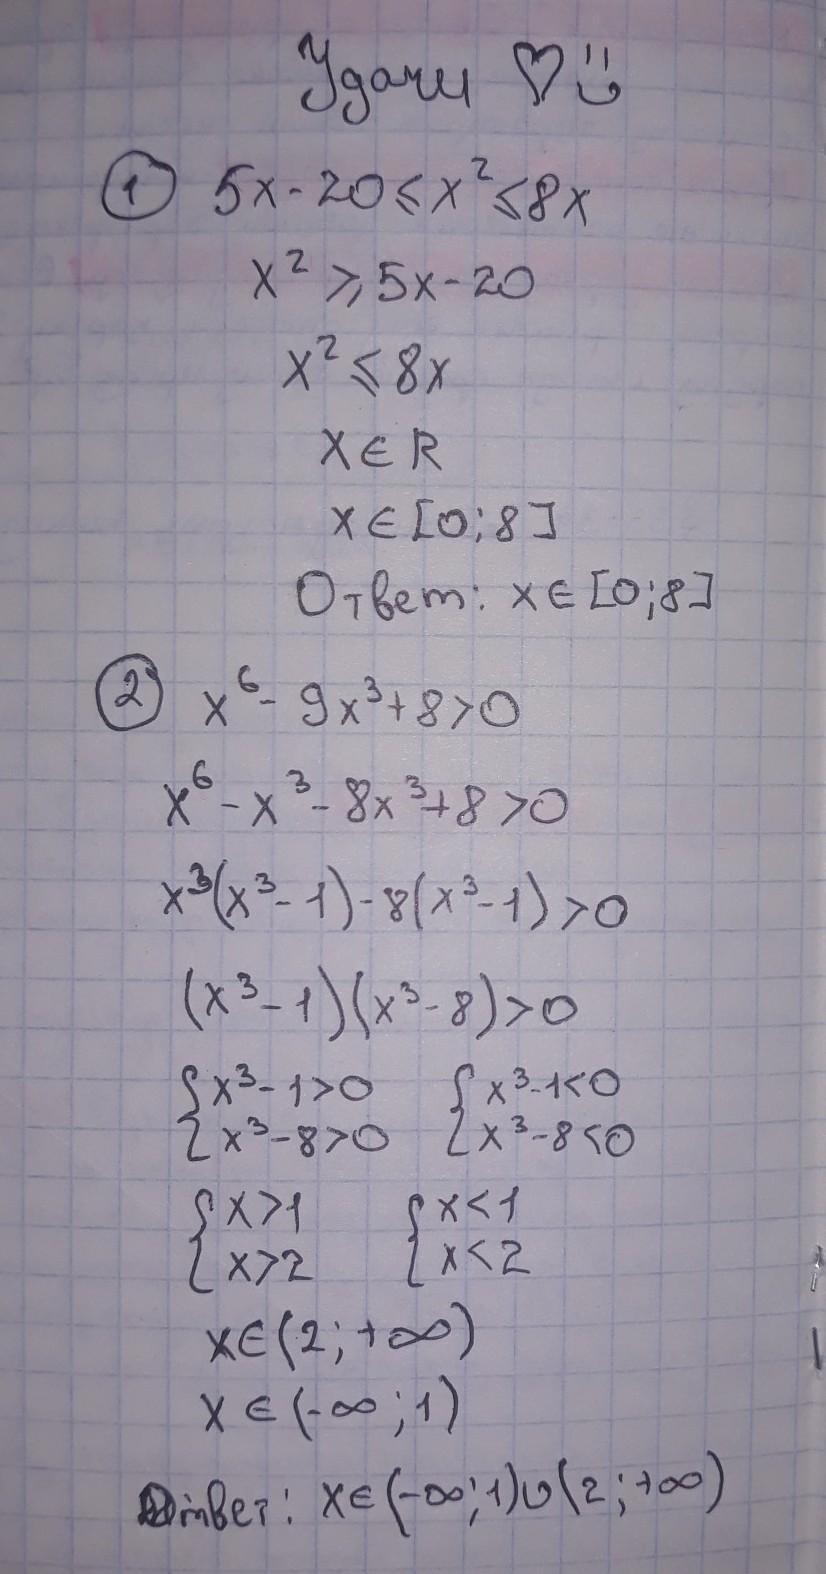 Удачи ♡ :)
① 5x-20⩽x²⩽8x
x²⩾5x-20
x²⩽8x
x∈R
x∈[0;8]
Ответ: x∈[0;8]
② x⁶-9x³+8>0
x⁶-x³-8x³+8>0
x³(x³-1)-8(x³-1)>0
(x³-1)(x³-8)>0
{x³-1>0 {x³-1<0
{x³-8>0 {x³-8<0
{x>1 {x<1
{x>2 {x<2
x∈(2;+∞)
x∈(-∞;1)
Ответ: x∈(-∞;1)∪(2;+∞)